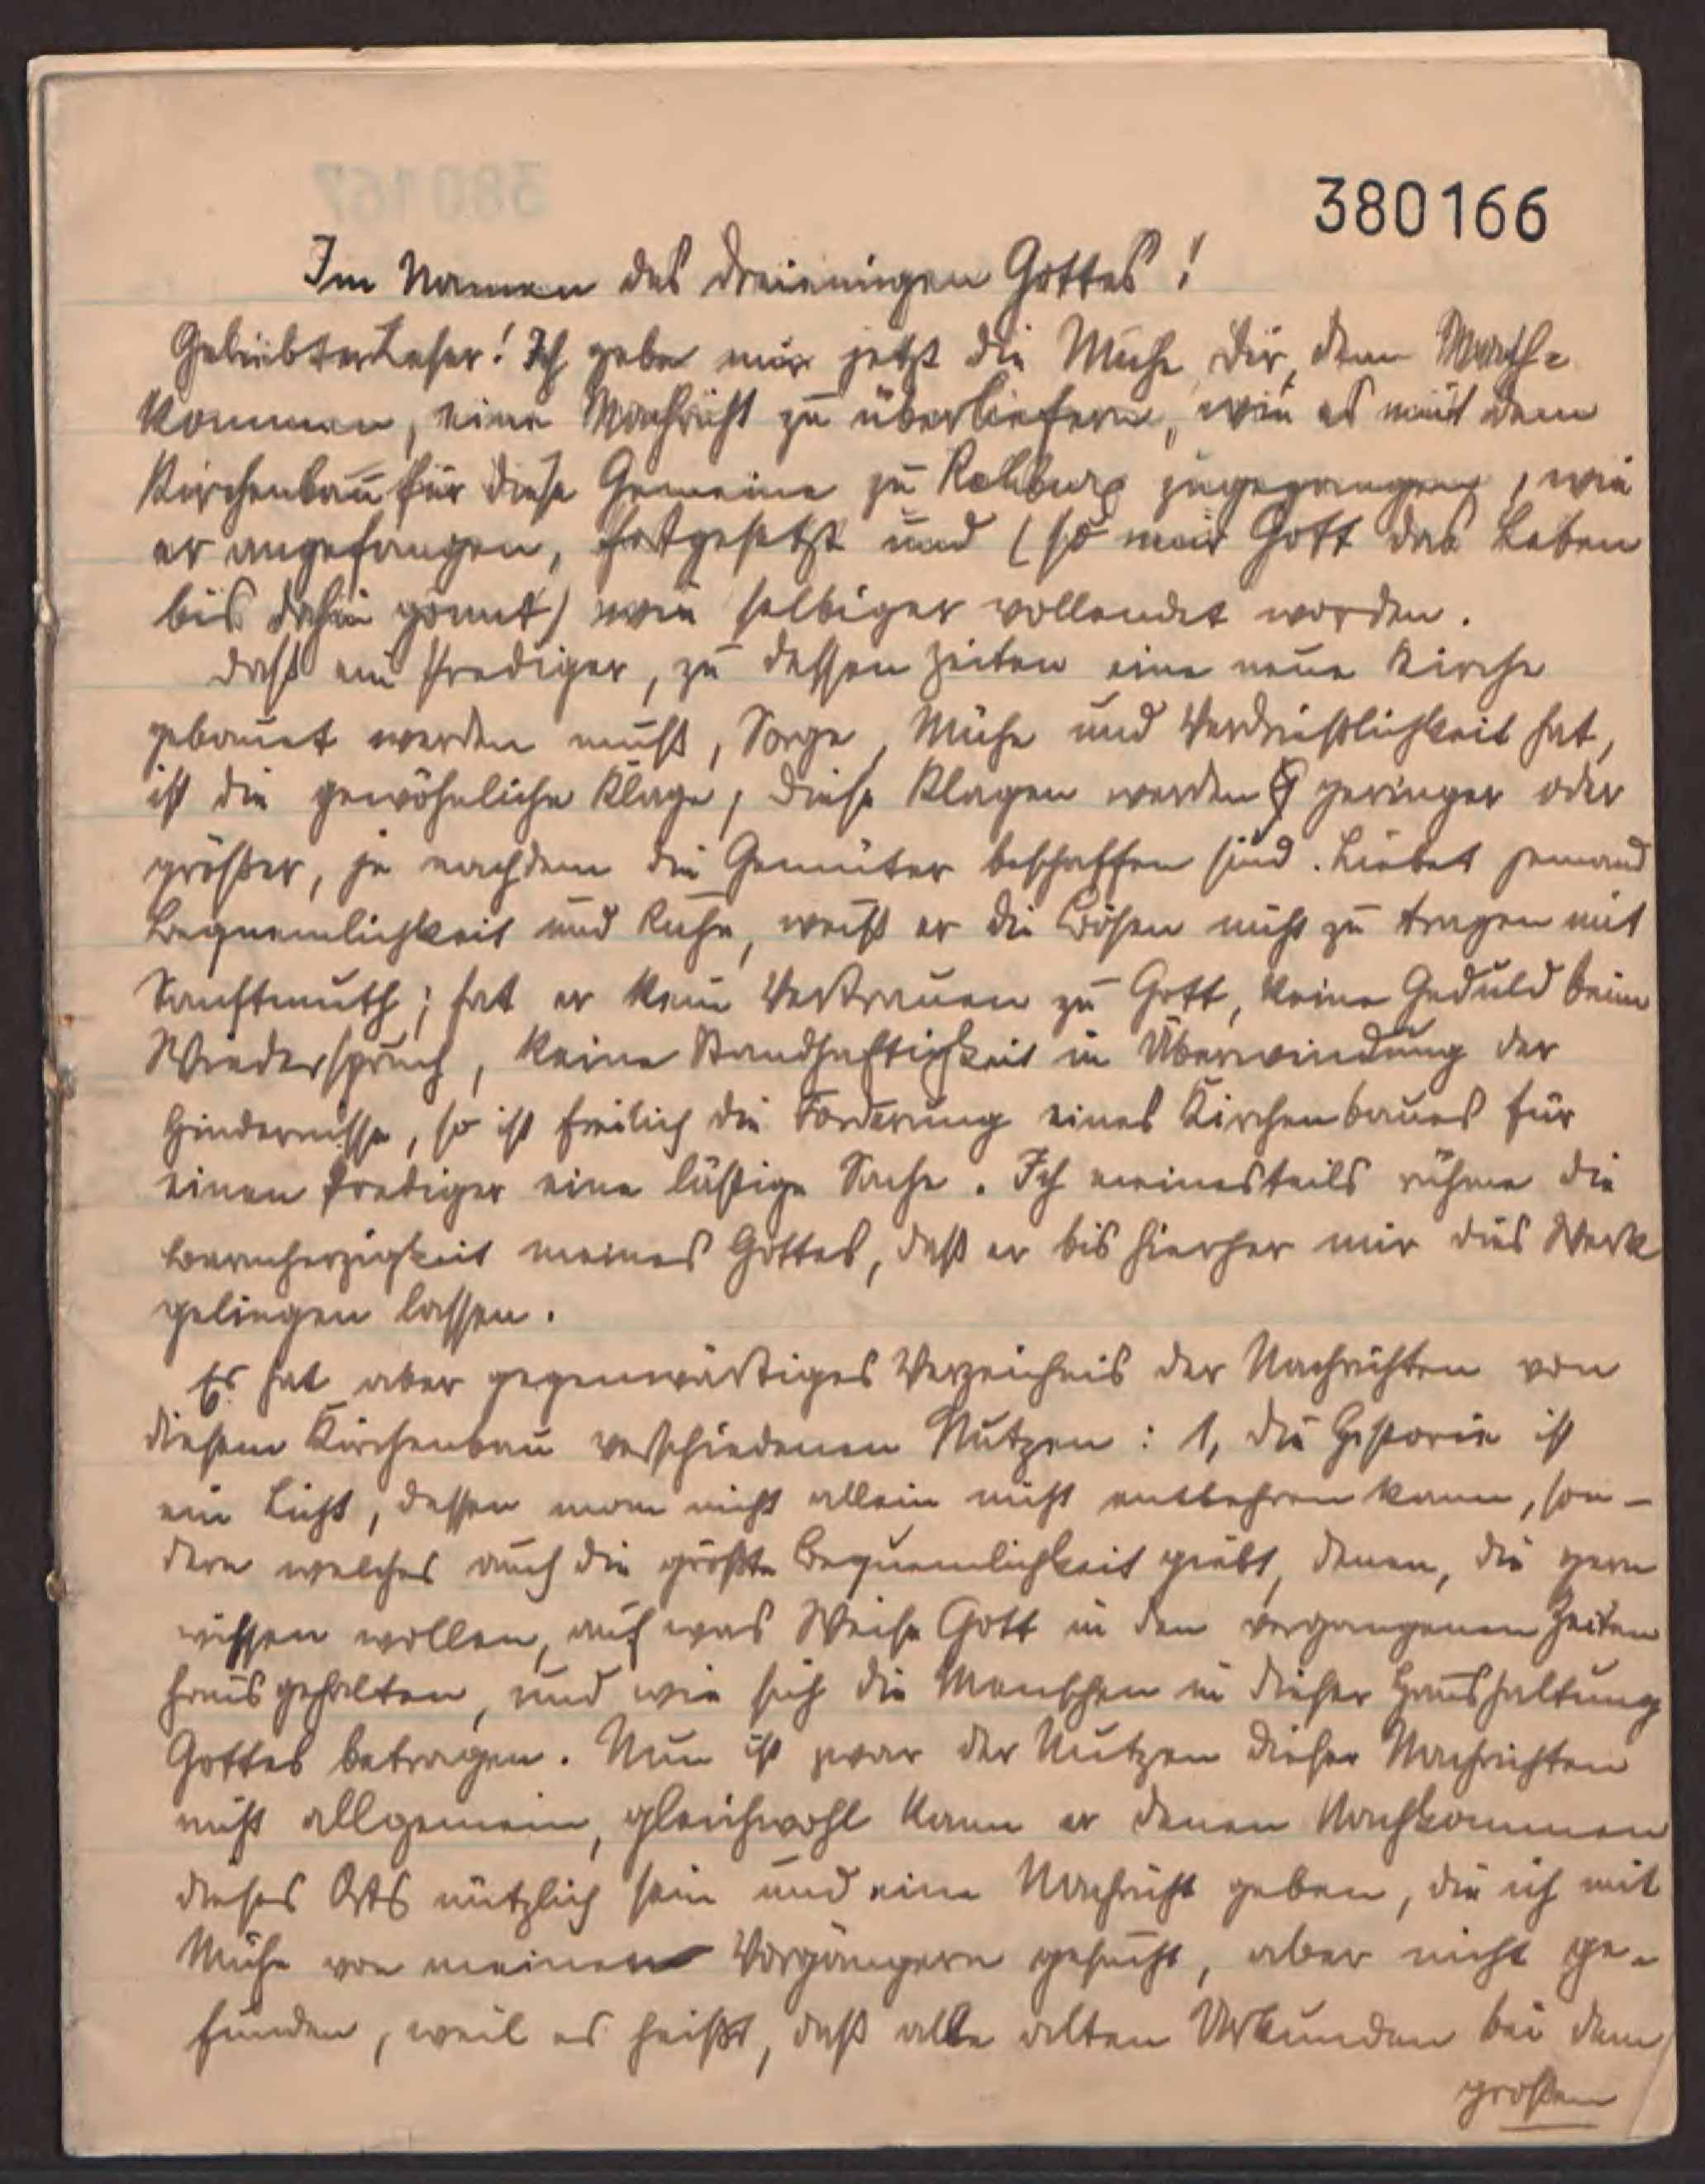 380166
Im Namen des dreieinigen Gottes!
Geliebter Leser! Ich gebe mir jetzt die Mühe, dir, dem Nach-
kommen, eine Nachricht zu überliefern, wie es mit dem
Kirchenbau für diese Gemeine zu Rehburg zugegangen, wie
er angefangen, fortgesetzt und (so mir Gott das Leben
bis dahin gönnt) wie selbiger vollendet worden.
Daß ein Prediger, zu dessen Zeiten eine neue Kirche
gebauet werden muß, Sorge, Mühe und Verdrießlichkeit hat,
ist die gewöhnliche Klage, diese Klagen werden geringer oder
größer, je nachdem die Gemüter beschaffen sind. Liebet jemand
Bequemlichkeit und Ruhe, weiß er die Bösen nicht zu tragen mit
Sanftmuth; hat er kein Vertrauen zu Gott, keine Geduld beim
Wiederspruch, keine Standhaftigkeit in Überwindung der
Hindernisse, so ist freilich die Förderung eines Kirchenbaues für
einen Prediger eine lästige Sache. Ich meinesteils rühme die
Barmherzigkeit meines Gottes, daß er bis hierher mir dies Werk
gelingen lassen.
Es hat aber gegenwärtiges Verzeichnis der Nachrichten von
diesem Kirchenbau verschiedenen Nutzen: 1, die Historie ist
ein Licht, dessen man nicht allein nicht entbehren kann, son-
dern welches auch die größte Bequemlichkeit giebt, denen, die gern
wissen wollen, auf was Weise Gott in den vergangenen Zeiten
hausgehalten, und wie sich die Menschen in dieser Haushaltung
Gottes betragen. Nun ist zwar der Nutzen dieser Nachrichten
nicht allgemein, gleichwohl kann er denen Nachkommen
dieses Orts nützlich sein und eine Nachricht geben, die ich mit
Mühe von meinen Vorgängern gesucht, aber nicht ge-
funden, weil es heißt, daß alle alten Urkunden bei dem
großen